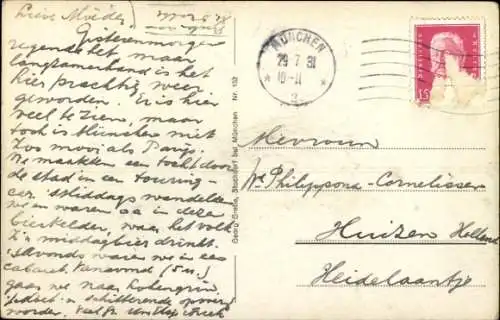 Lieve Moeder
Gisterenmorgen
regende het maar
langzamerhand is het
hier prachtig weer
geworden. Er is hier
veel te zien, maar
toch is München niet
zoo mooi als Parijs.
We maakten een tocht door
de stad in een touring-
car. 's Middags wandelden
we en waren oa in deze
bierkelder, waar het volk
z'n middagbier drinkt.
's Avonds waren we in een
cabaret. Vanavond (5 u.)
gaan we naar Lohengrin,
in schitterende
worden.
MÜNCHEN
29 7 31
10-11
* 2 *
15
Georg Stockdorf bei München Nr. 102
Mevrouw
We Philippona-Cornelissen
Huizen Holland
Heidelaantje